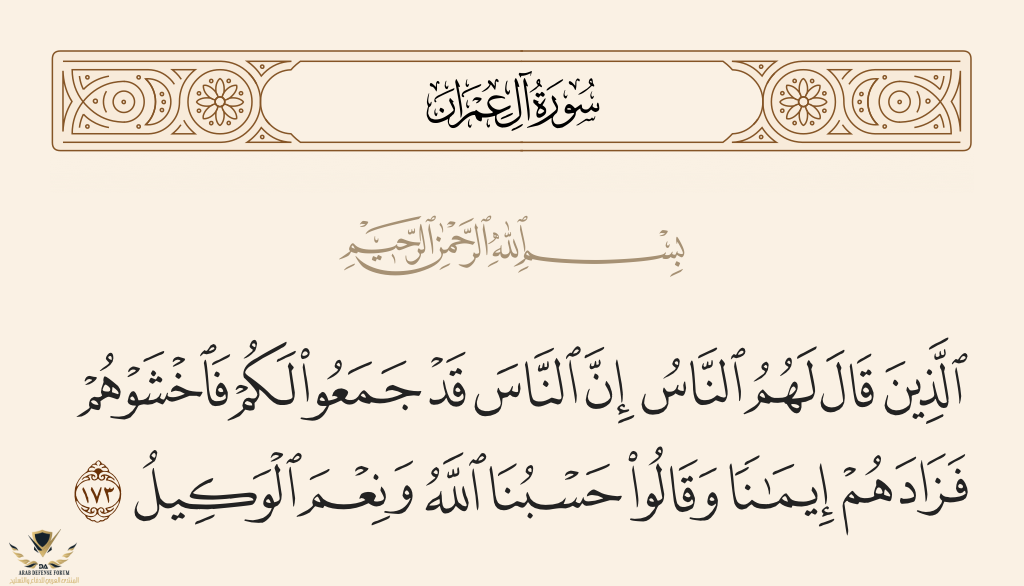 سُورَةُ آلِ عِمْرَان
بِسْمِ ٱللَّهِ ٱلرَّحْمَٰنِ ٱلرَّحِيمِ
ٱلَّذِينَ قَالَ لَهُمُ ٱلنَّاسُ إِنَّ ٱلنَّاسَ قَدْ جَمَعُوا۟ لَكُمْ فَٱخْشَوْهُمْ
فَزَادَهُمْ إِيمَـٰنًا وَقَالُوا۟ حَسْبُنَا ٱللَّهُ وَنِعْمَ ٱلْوَكِيلُ ١٧٣
DA
ARAB DEFENSE FORUM
المنتدى العربي للدفاع والتسليح